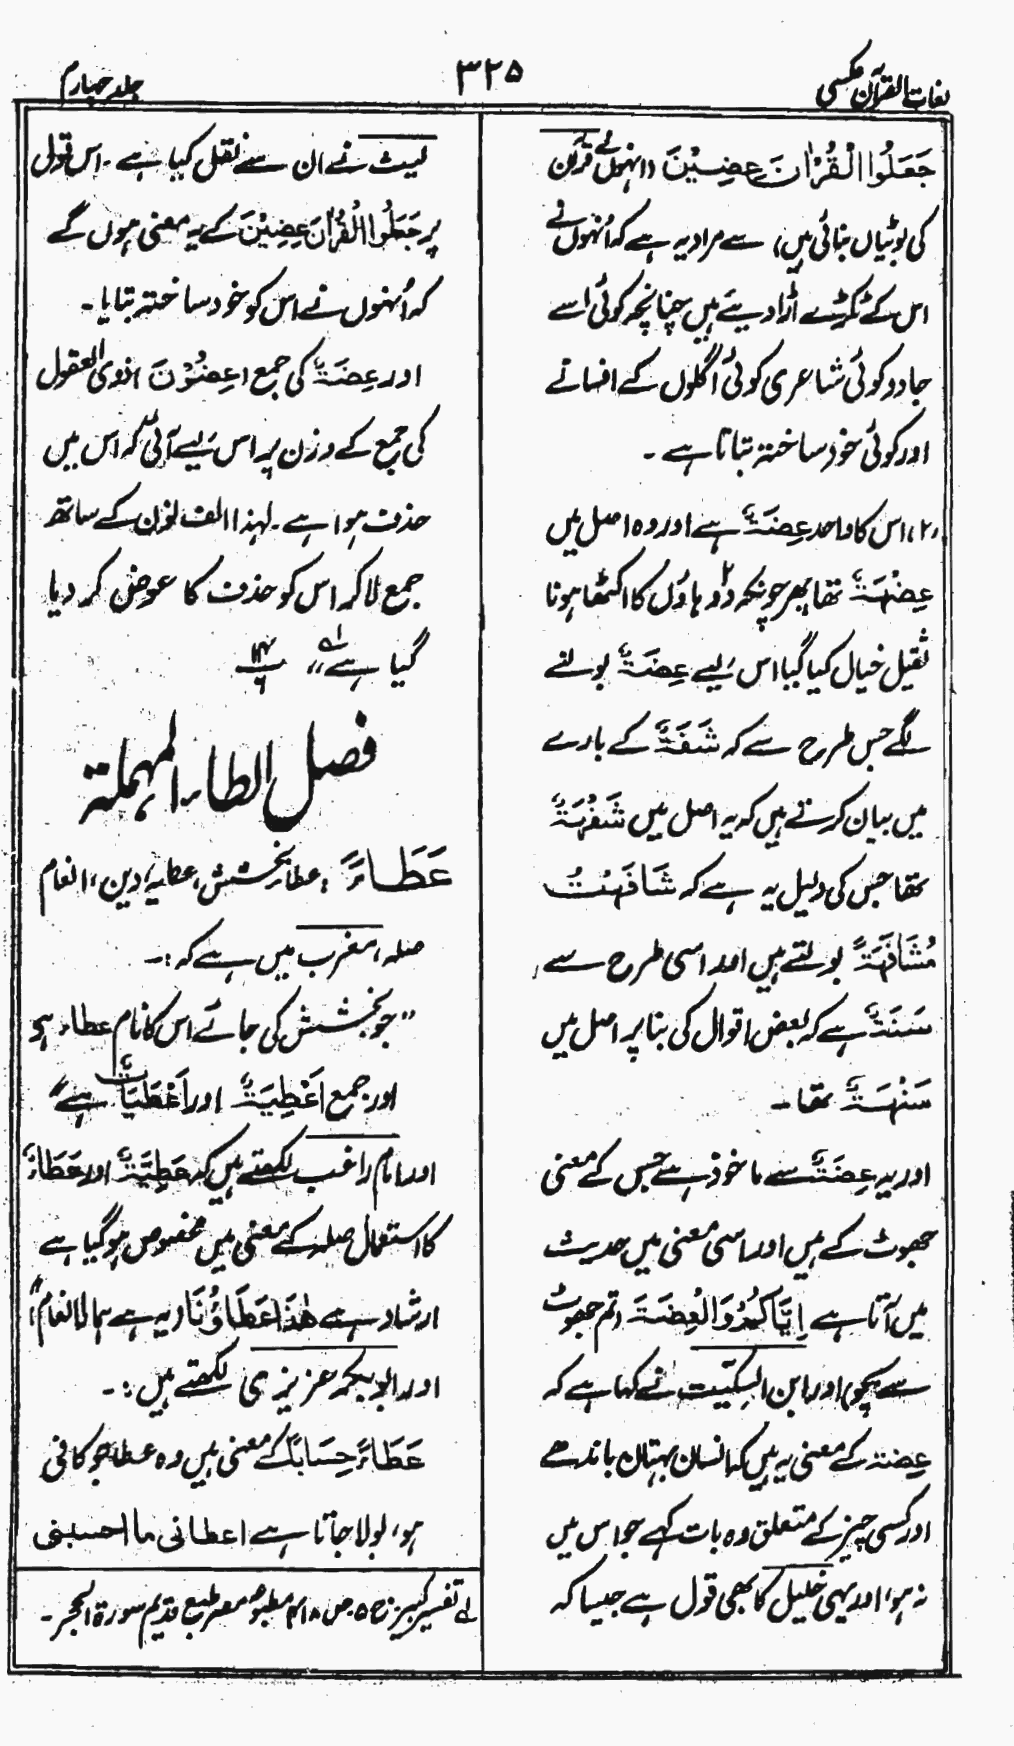 لغات القرآن عکسی
۳۲۵
جلد چہارم
جَعَلُوا الْقُرْاٰنَ عِضِیْنَ (انہوں نے قرآن
کی بوٹیاں بنائی ہیں) سے مراد یہ ہے کہ اُنہوں نے
اس کے ٹکڑے اُڑا دیئے ہیں چنانچہ کوئی اسے
جادو کوئی شاعری کوئی اگلوں کے افسانے
اور کوئی خود ساختہ بتاتا ہے ۔
(۲) اس کا واحد عِضَۃٌ ہے اور وہ اصل میں
عِضْہَۃٌ تھا پھر چونکہ دو ہاؤں کا اکٹھا ہونا
ثقیل خیال کیا گیا اس لیے عِضَۃٌ بولنے
لگے جس طرح سے کہ شَفَۃٌ کے بارے
میں بیان کرتے ہیں کہ یہ اصل میں شَفْہَۃٌ
تھا جس کی دلیل یہ ہے کہ شَافَہْتُ
مُشَافَہَۃً بولتے ہیں اور اسی طرح سے
سَنَۃٌ ہے کہ بعض اقوال کی بنا پر اصل میں
سَنْہَۃٌ تھا ۔
اور یہ عِضَۃٌ سے ماخوذ ہے جس کے معنی
جھوٹ کے ہیں اور اسی معنی میں حدیث
میں آتا ہے اِیَّاکُمْ وَالْعِضَۃَ (تم جھوٹ
سے بچو) اور ابن السِکِّیت نے کہا ہے کہ
عِضۃ کے معنی یہ ہیں کہ انسان بہتان باندھے
اور کسی چیز کے متعلق وہ بات کہے جو اس میں
نہ ہو، اور یہی خلیل کا بھی قول ہے جیسا کہ
لیث نے ان سے نقل کیا ہے ۔ اس قول
پر جَعَلُوا الْقُرْاٰنَ عِضِیْنَ کے یہ معنی ہوں گے
کہ اُنہوں نے اس کو خود ساختہ بتایا ۔
اور عِضَۃٌ کی جمع (عِضُوْنَ) ذوی العقول
کی جمع کے وزن پر اس لیے آئی کہ اس میں
حذف ہوا ہے ۔ لہذا الف نون کے ساتھ
جمع لا کر اس کو حذف کا عوض کر دیا
گیا ہے لہ،، ۱۴ ۶
فصل الطاء المہملۃ
عَطَاءً : عطا بخشش، عطایہ، دین، انعام
صلہ، مغرب میں ہے کہ :۔
"جو بخشش کی جائے اس کا نام عطاء ہے
اور جمع اَعْطِیَۃٌ اور اَعْطَیَاتٌ ہے"
اور امام راغب لکھتے ہیں کہ عَطِیَّۃٌ اور عَطَاءٌ
کا استعمال صلہ کے معنی میں مخصوص ہو گیا ہے
ارشاد ہے ھٰذَا عَطَاؤُنَا (یہ ہے ہمارا انعام)"
اور ابوبکر عزیزی لکھتے ہیں :۔
عَطَاءً حِسَابًا کے معنی ہیں وہ عطا جو کافی
ہو، بولا جاتا ہے اعطانی ما احسبنی
لہ تفسیر کبیر ج ۵ ص ۴۱۸ مطبوعہ مصر طبع قدیم سورۃ الحجر ۔